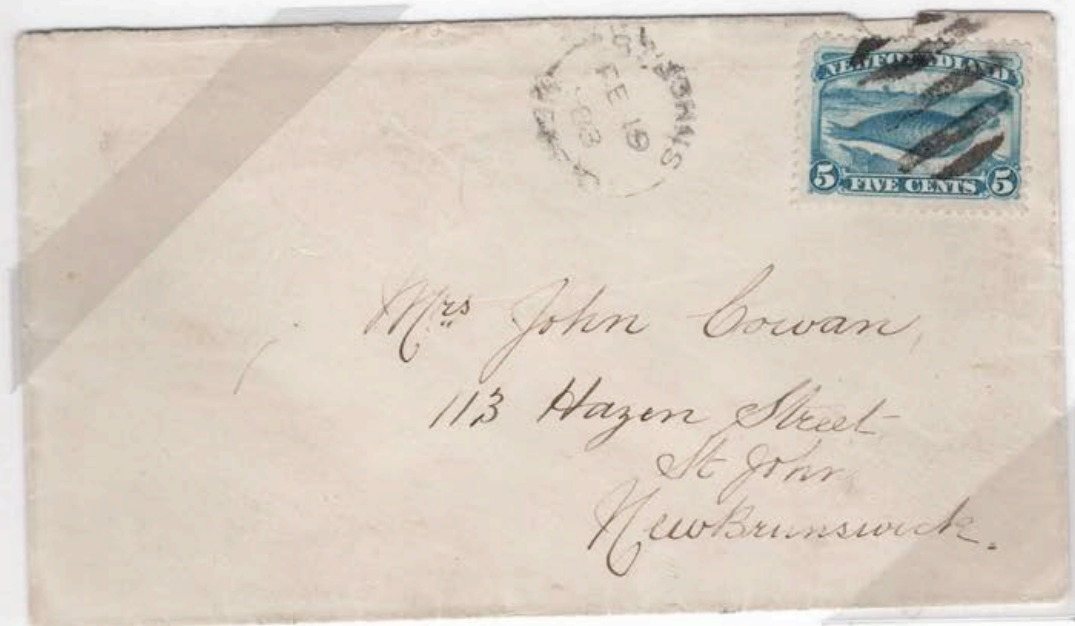 ST. JOHN'S
FE 19
NEWFOUNDLAND
5 FIVE CENTS 5
Mrs John Cowan,
113 Hazen Street
St John
New Brunswick.